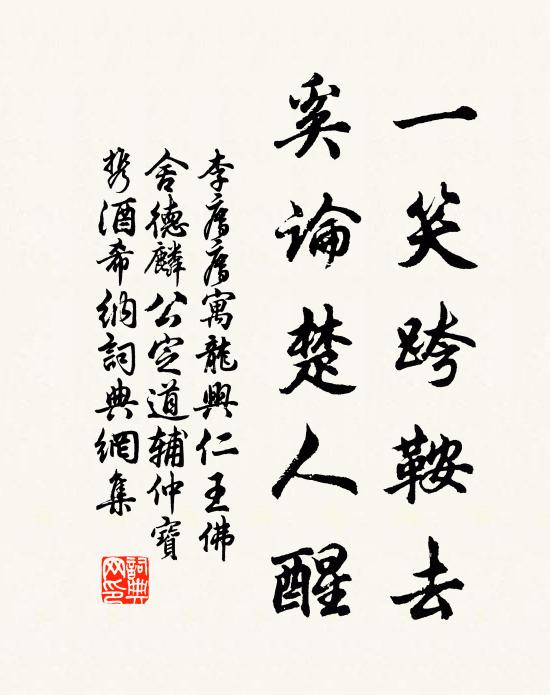 一笑跨鞍去
奚論楚人醒
李廌廌寓龍興仁王佛
舍德麟公定道輔仲寶
携酒希納詞典網集
詞典网印